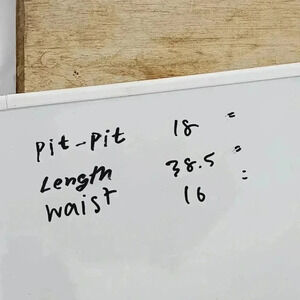 Pit-Pit 18 "
Length 38.5 "
Waist 16 "